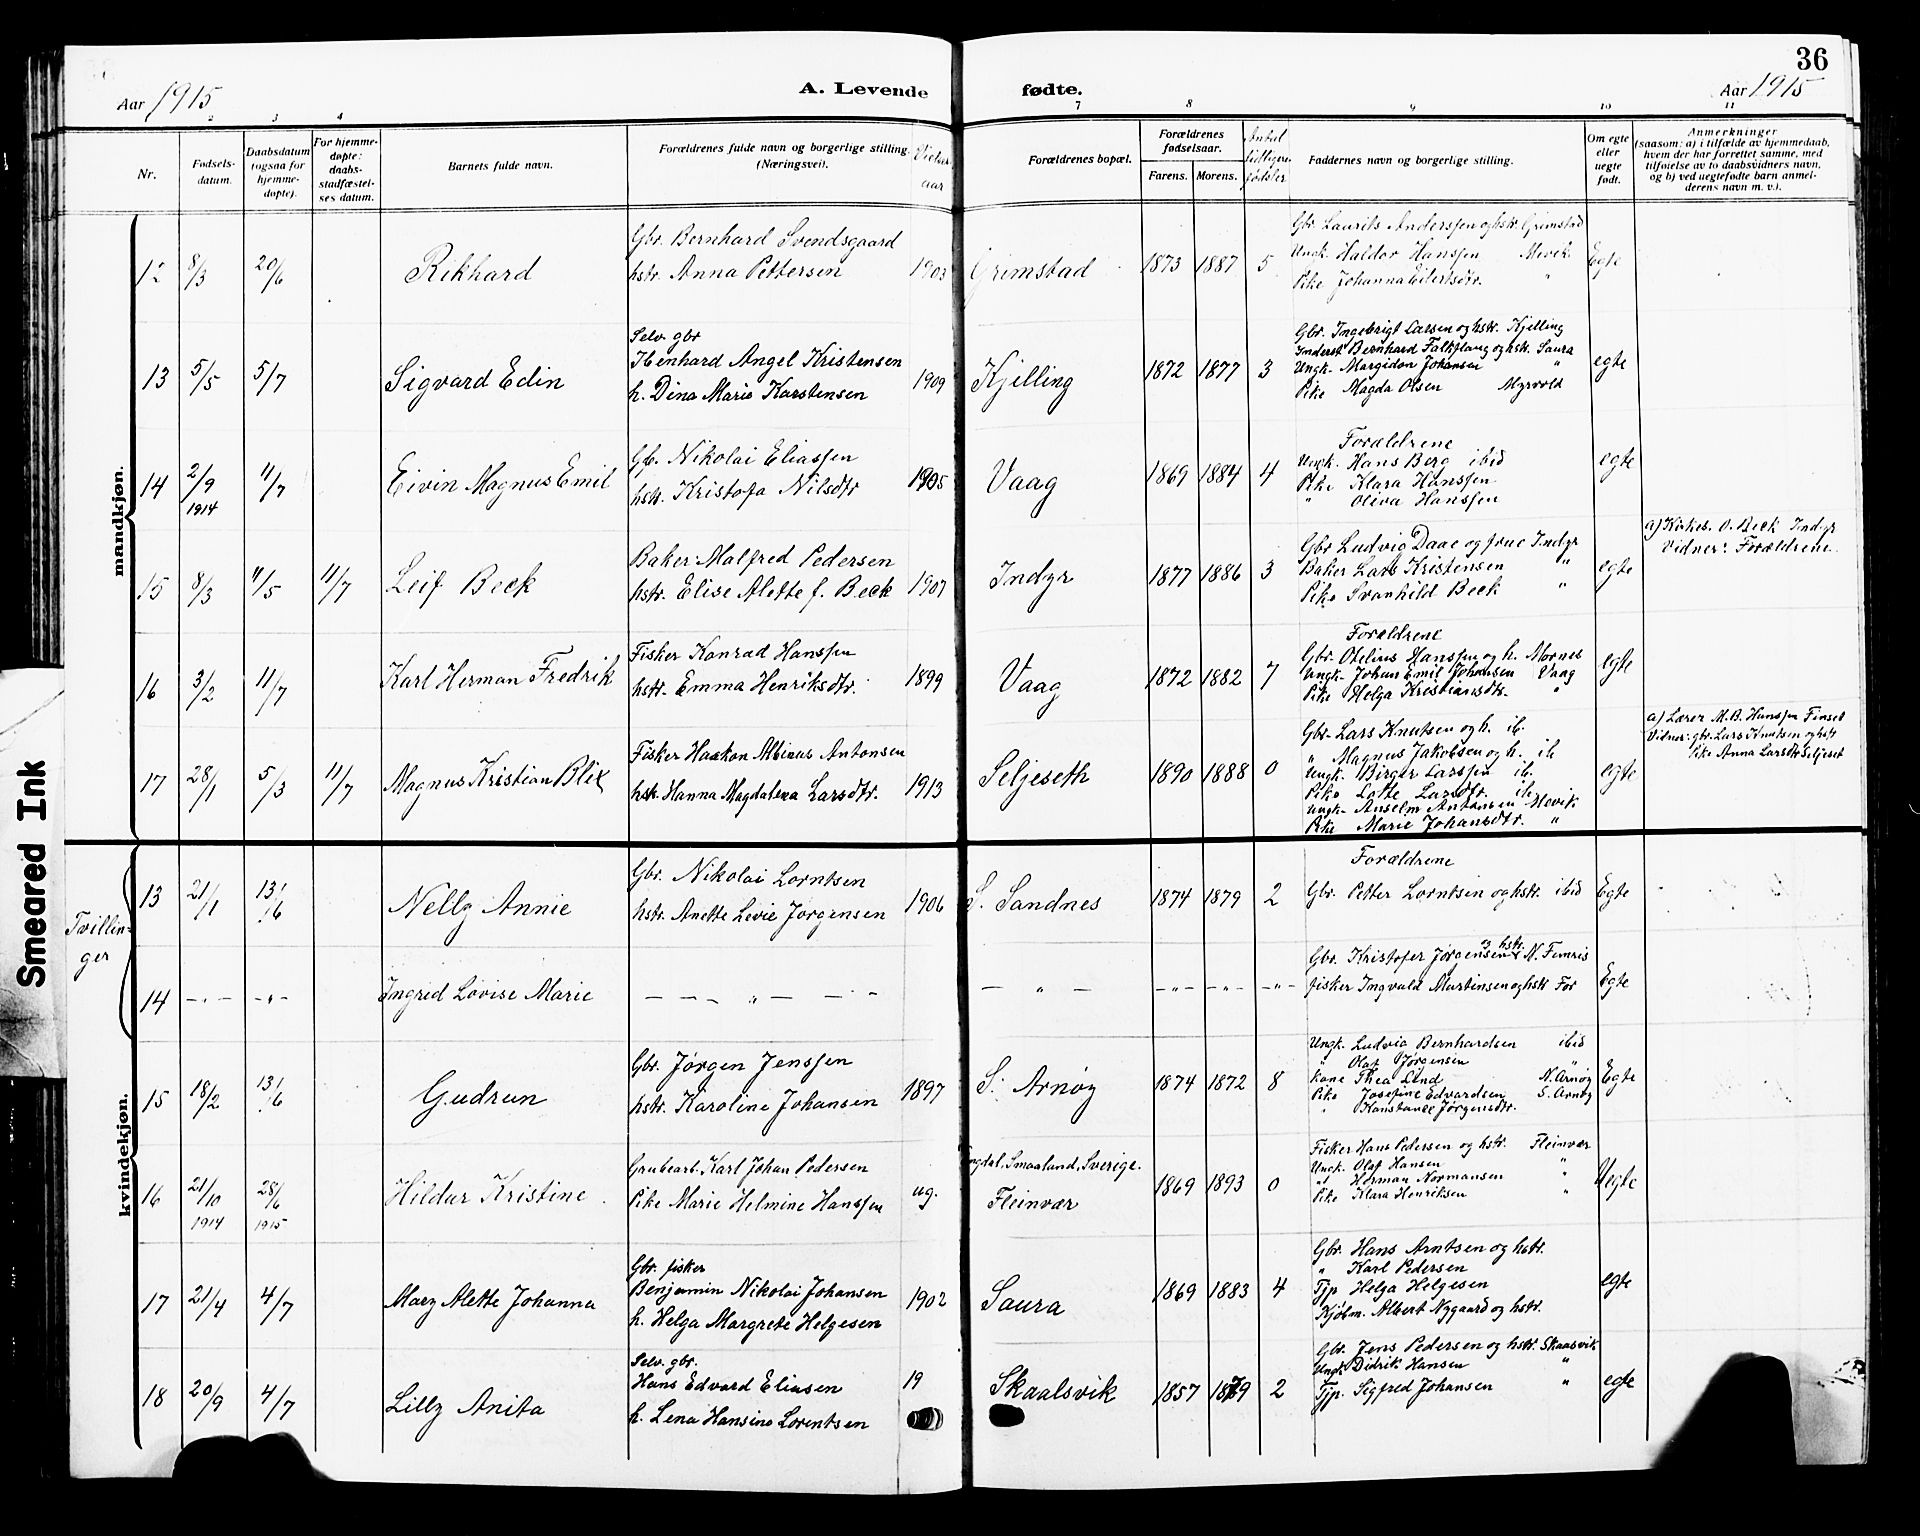 36
Aar 1915
A. Levende
fødte.
Aar 1915
2 3 4
7 8 9 10 11
Nr.
Fødsels-
datum.
Daabsdatum
(ogsaa for
hjemme-
døpte).
For hjemme-
døpte:
daabs-
stadfæstel-
ses datum.
Barnets fulde navn.
Forældrenes fulde navn og borgerlige stilling.
(Næringsvei).
Vielses
aar
Forældrenes bopæl.
Forældrenes
fødselsaar.
Farens. Morens.
Antal
tidligere
fødsler
Faddernes navn og borgerlige stilling.
Om egte
eller
uegte
født.
Anmerkninger
(saasom: a) i tilfælde av hjemmedaab,
hvem der har forrettet samme, med
tilføielse av to daabsvidners navn,
og b) ved uegtefødte barn anmel-
derens navn m. v.).
mandkjøn.
12 8/3 20/6 Rikhard
Gbr. Bernhard Svendsgaard
hstr. Anna Pettersen
1903 Grimstad 1873 1887 5
Gbr. Laurits Anderssen og hstr. Grimstad
Ungk. Haldor Hanssen Mevik
Pike Johanna Eilertsdtr. "
Egte
13 5/5 5/7 Sigvard Edin
Selv. gbr
Ibenhard Angel Kristensen
h. Dina Marie Karstensen
1909 Kjelling 1872 1877 3
Gbr. Ingebrigt Larsen og hstr. Kjelling
Inderst Bernhard Falkflaug og hstr. Saura
Ungk. Margidon Johansen "
Pike Magda Olsen Myrvold
egte
14 2/9 1914 11/7 Eivin Magnus Emil
Gb. Nikolai Eliassen
hstr. Kristofa Nilsdtr
1905 Vaag 1869 1884 4
Forældrene
Ungk. Hans Berg ibid
Pike Klara Hanssen
" Oliva Hanssen
egte
15 8/3 11/5 11/7 Leif Beck
Baker Malfred Pedersen
hstr. Elise Alette f. Beck
1907 Indyr 1877 1886 3
Gbr Ludvig Daae og frue Indyr
Baker Lars Kristensen "
Pike Svanhild Beck "
egte
a) Kirkes. O. Beck Indyr
Vidner: Forældrene
16 3/2 11/7 Karl Herman Fredrik
Fisker Konrad Hanssen
hstr. Emma Henriksdtr.
1899 Vaag 1872 1882 7
Forældrene
Gbr. Otelius Hanssen og h. Mornes
Ungk. Johan Emil Johansen Vaag
Pike Helga Kristiansdtr. "
egte
17 28/1 5/3 11/7 Magnus Kristian Blix
Fisker Haakon Albinus Antonsen
hstr. Hanna Magdalena Larsdtr.
1913 Seljeseth 1890 1888 0
Gbr. Lars Knutsen og h. ib.
" Magnus Jakobsen og h. ib
Ungk. Birger Larssen ib.
Pike Lotte Larsdtr. ib.
Ungk. Anselm Antonsen Mevik
Pike Marie Johansdtr. "
egte
a) Lærer M. B. Hanssen Finset
Vidner: gbr. Lars Knutsen og hstr
Pike Anna Larsdtr Seljeset
kvindekjøn.
Tvillin-
ger
13 21/1 13/6 Nelly Annie
Gbr. Nikolai Lorntsen
hstr. Anette Levie Jørgensen
1906 S. Sandnes 1874 1879 2
Forældrene
Gbr. Petter Lorntsen og hstr. ibid
Egte
14 – " – – " – Ingrid Lovise Marie
– – – " – – –
– " – – " – – " – – " –
Gbr. Kristofer Jørgensen og hstr. N. Femris
fisker Ingvald Martinsen og hstr. Før
Egte
15 18/2 13/6 Gudrun
Gbr. Jørgen Jenssen
hstr. Karoline Johansen
1897 S. Arnøy 1874 1872 8
Ungk. Ludvig Bernhardsen ibid
" Olaf Jørgensen "
Kone Thea Lind N. Arnøy
Pike Josefine Edvardsen S. Arnøy
" Konstance Jørgensdtr.
Egte
16 21/10 1914 28/6 1915 Hildur Kristine
Grubearb. Karl Johan Pedersen
Pike Marie Helmine Hanssen
ug. Smaaland, Sverige.
Fleinvær 1869 1893 0
Fisker Hans Pedersen og hstr. Fleinvær
Ungk. Olaf Hansen "
" Herman Normansen "
Pike Klara Henriksen "
Uegte
17 21/4 4/7 Mary Alette Johanna
Gbr. fisker
Benjamin Nikolai Johansen
h. Helga Margrete Helgesen
1902 Saura 1869 1883 4
Gbr. Hans Arntsen og hstr.
" Karl Pedersen
Tjp Helga Helgesen
Kjøbm. Albert Nygaard og hstr.
egte
18 20/9 4/7 Lilly Anita
Selv. gbr.
Hans Edvard Eliasen
h. Lena Hansine Lorentsen
19 Skaalsvik 1857 1879 2
Gbr. Jens Pedersen og hstr. Skaalsvik
Ungk. Didrik Hansen "
Tjp. Sigfred Johansen "
egte
Smeared Ink